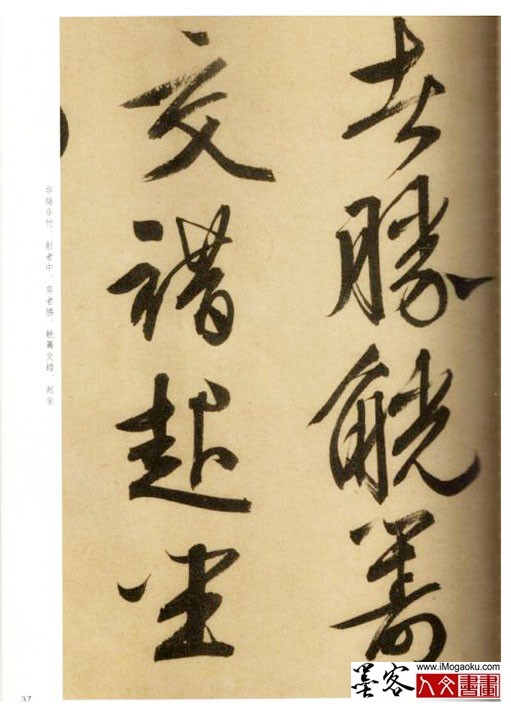 者勝觥籌
交錯起坐
非絲非竹，射者中，弈者勝，觥籌交錯，起坐
37
墨客
www.iMogaoku.com
人文書畫